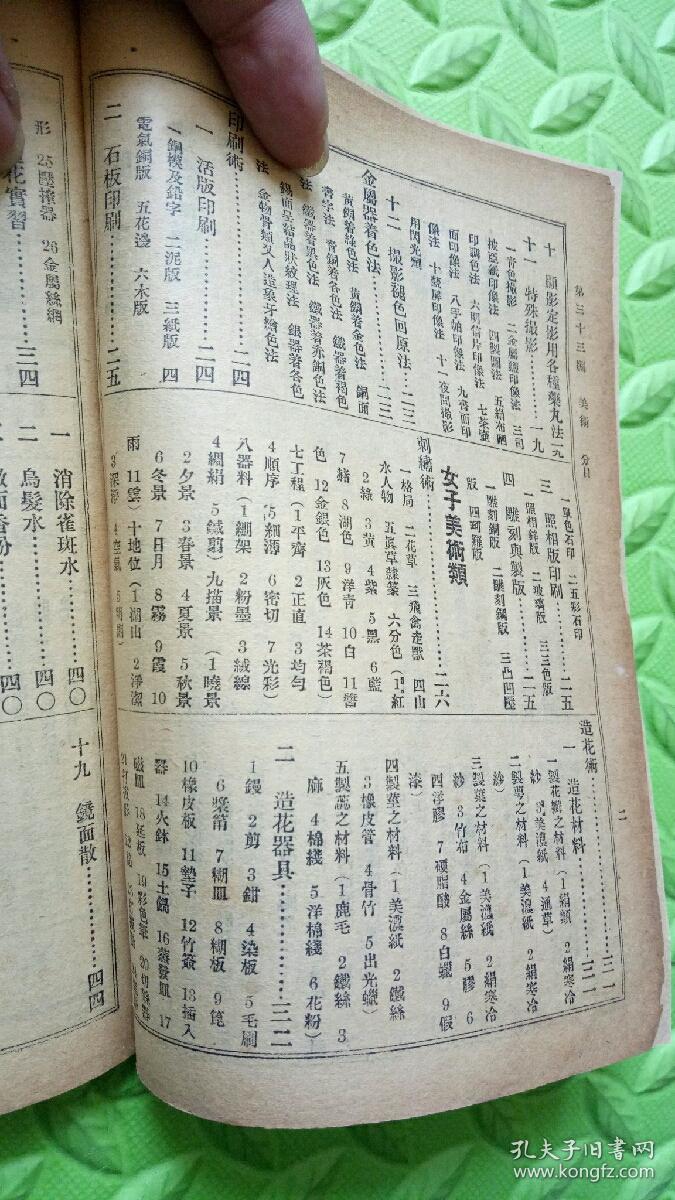 第三十三編　美術　分目
二
十　顯影定影用各種藥丸法…一九
十一　特殊撮影…………一九
一青色撮影　二金屬纏印像法　三司
披瓷紙印像法　四製圖法　五絹布晒
印調色法　六明信片印像法　七茶壺
面印像法　八手帕印像法　九書面印
像法　十藝屏印像法　十一夜間撮影
用閃光類
十二　撮影褪色回原法……二三
金屬器着色法………………二三
黃銅着金色法　銅面
黃銅着綠色法　鐵器着褐色
書字法　青銅着各色法
法　鐵器着黑色法　鐵器着赤銅色法
錫面呈結晶狀紋理法　銀器着各色
法　金物骨類及人造象牙繪色法
印刷術………………………二四
一　活版印刷………………二四
一銅模及鉛字　二泥版　三紙版　四
電氣銅版　五花邊　六木版
二　石板印刷………………二五
一單色石印　二五彩石印
三　照相版印刷……………二五
一照相鋅版　二玻璃版　三三色版
四　雕刻與製版……………二五
一雕刻銅版　二雕刻鋼版　三凸凹壓
版　四珂羅版
女子美術類
刺繡術………………………二六
一格局　二花草　三飛禽走獸　四山
水人物　五眞草隸篆　六分色（1紅
2綠　3黃　4紫　5黑　6藍
7赭　8湖色　9洋青　10白　11醬
色　12金銀色　13灰色　14茶褐色）
七工程（1平齊　2正直　3均勻
4順序　5細薄　6密切　7光彩）
八器料（1綳架　2粉墨　3絨線
4綢絹　5鐵剪）九描景（1曉景
2夕景　3春景　4夏景　5秋景
6冬景　7日月　8霧　9霞　10
雨　11雲）十地位（1湖山　2淨潔
3深淺　4空氣　5
造花術………………………三一
一　造花材料………………三一
一製花瓣之材料（1絹類　2絹寒冷
紗　3美濃紙　4通草）
二製萼之材料（1美濃紙　2絹寒冷
紗）
三製葉之材料（1美濃紙　2絹寒冷
紗　3竹布　4金屬絲　5膠　6
四浮膠　7硬脂酸　8白蠟　9假
漆）
四製莖之材料（1美濃紙　2鐵絲
3橡皮管　4骨竹　5出光蠟）
五製蕊之材料（1鹿毛　2鐵絲　3
麻　4棉綫　5洋棉綫　6花粉）
二　造花器具………………三二
1鏝　2剪　3鉗　4染板　5毛刷
6漿箭　7糊皿　8糊板　9篦
10橡皮板　11墊子　12竹簽　13插入
器　14火鉢　15土鍋　16蒸發皿　17
磁皿　18延板　19彩色筆　20切絲器
形　25壓搾器　26金屬絲網
花實習……………三四
一　消除雀斑水……………四〇
二　烏髮水…………………四〇
面香粉……………四〇
十九　鏡面散………………四四
孔夫子旧书网
www.kongfz.com